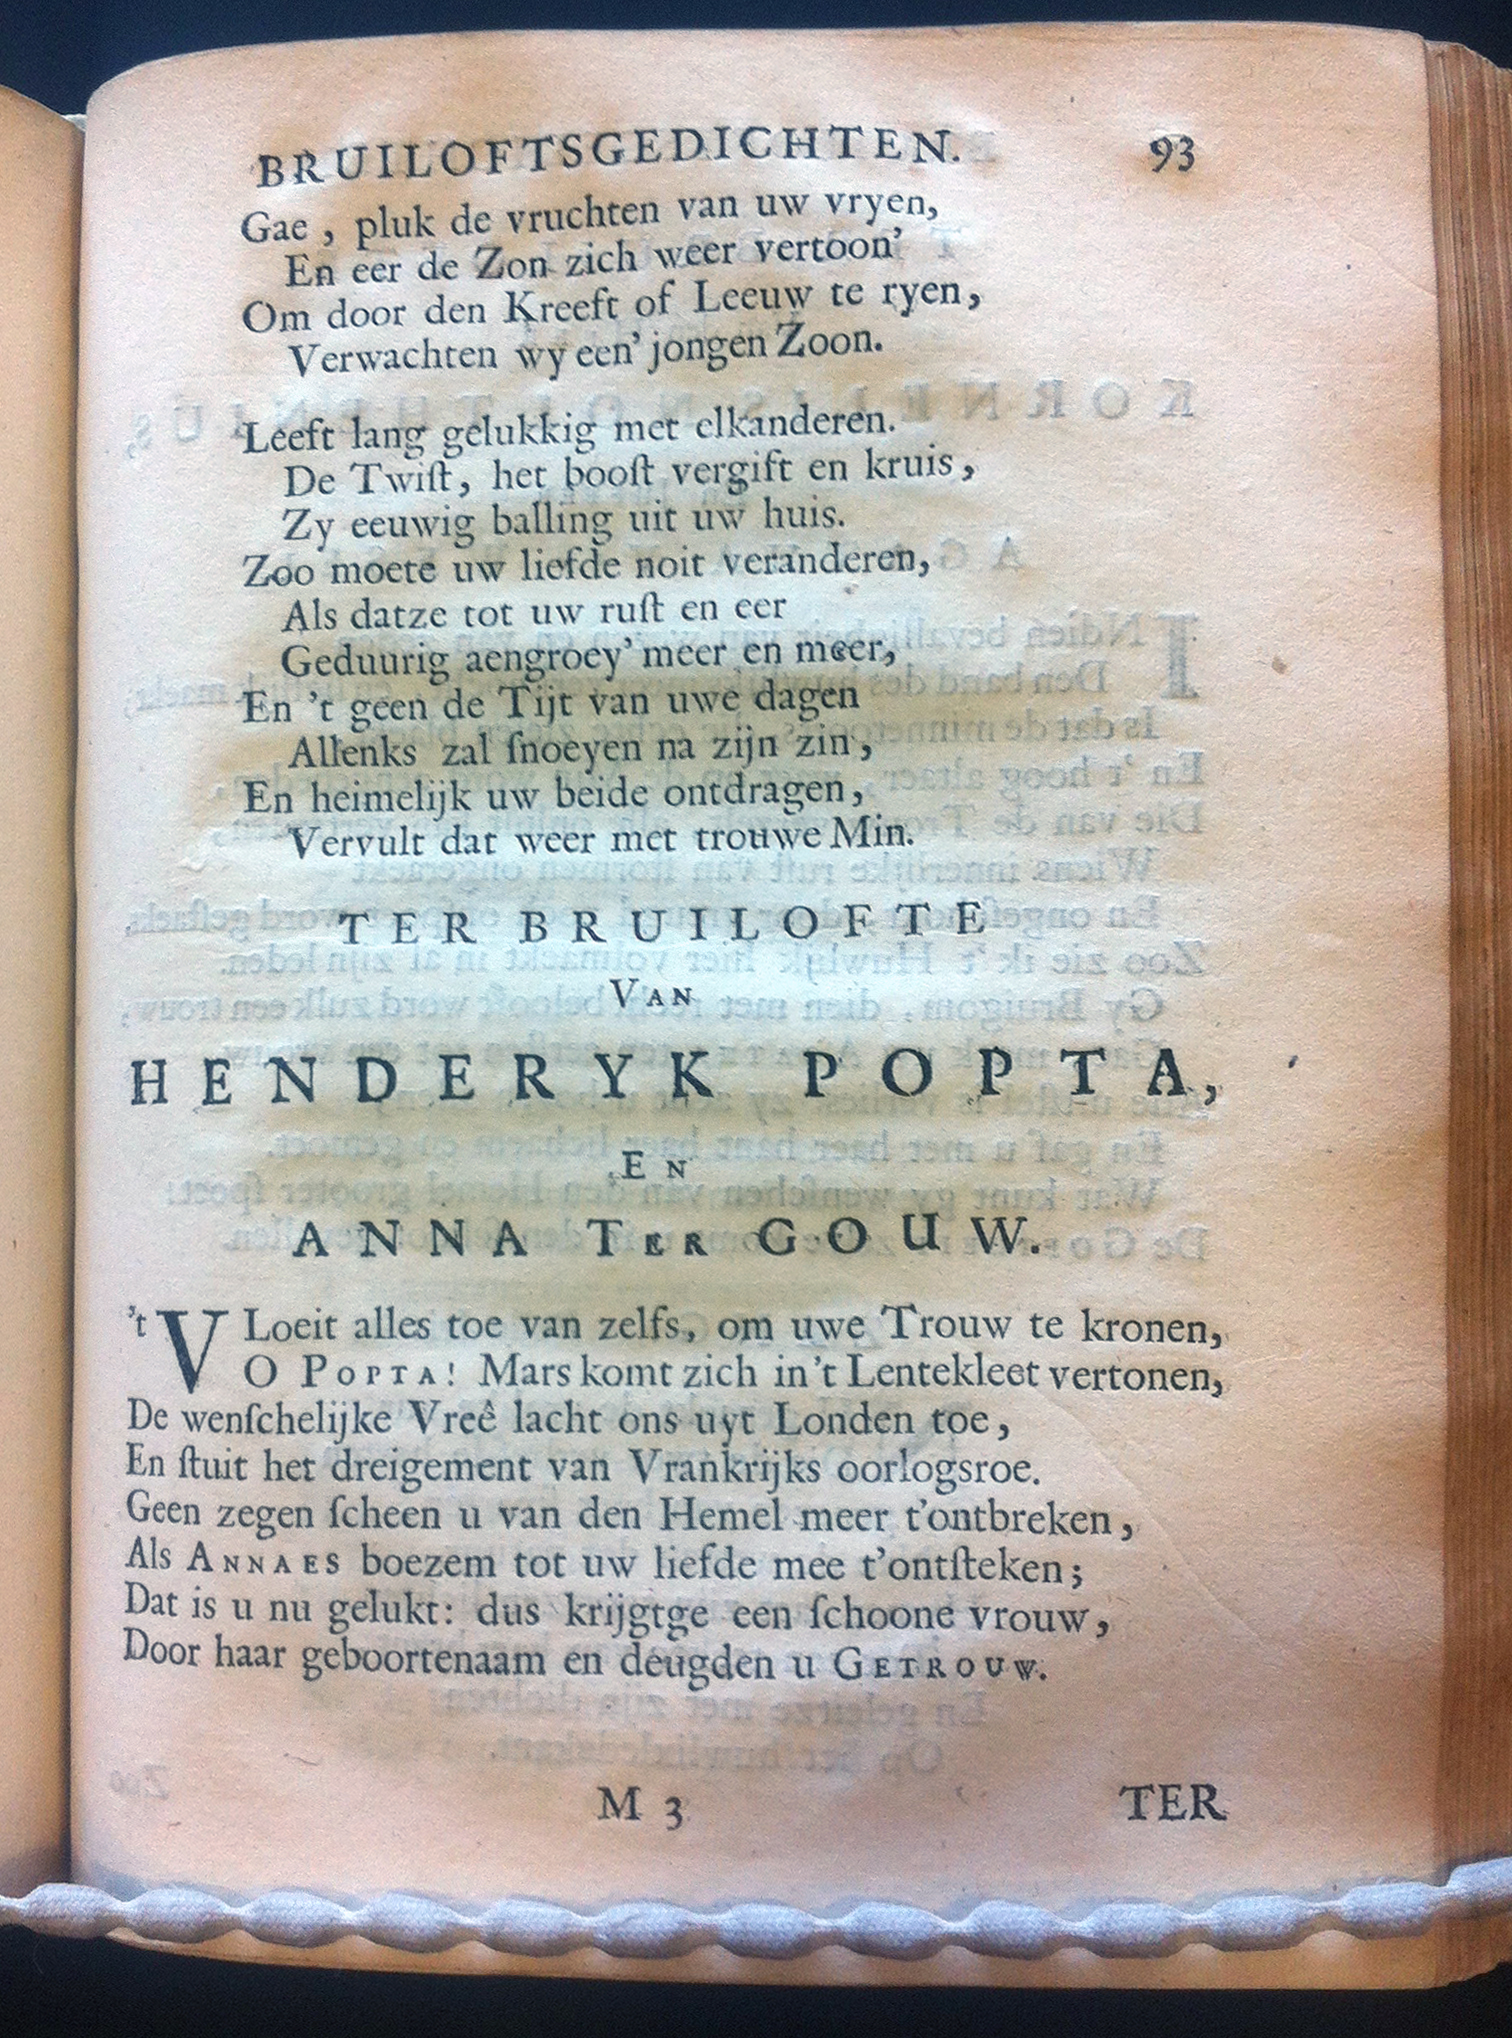 BRUILOFTSGEDICHTEN. 93
Gae, pluk de vruchten van uw vryen,
En eer de Zon zich weer vertoon'
Om door den Kreeft of Leeuw te ryen,
Verwachten wy een' jongen Zoon.
Leeft lang gelukkig met elkanderen.
De Twiſt, het booſt vergift en kruis,
Zy eeuwig balling uit uw huis.
Zoo moete uw liefde noit veranderen,
Als datze tot uw ruſt en eer
Geduurig aengroey' meer en meer,
En 't geen de Tijt van uwe dagen
Allenks zal ſnoeyen na zijn zin,
En heimelijk uw beide ontdragen,
Vervult dat weer met trouwe Min.
TER BRUILOFTE
VAN
HENDERYK POPTA,
EN
ANNA TER GOUW.
't VLoeit alles toe van zelfs, om uwe Trouw te kronen,
O POPTA! Mars komt zich in 't Lentekleet vertonen,
De wenſchelijke Vreê lacht ons uyt Londen toe,
En ſtuit het dreigement van Vrankrijks oorlogsroe.
Geen zegen ſcheen u van den Hemel meer t'ontbreken,
Als ANNAES boezem tot uw liefde mee t'ontſteken;
Dat is u nu gelukt: dus krijgtge een ſchoone vrouw,
Door haar geboortenaam en deugden u GETROUW.
M 3 TER